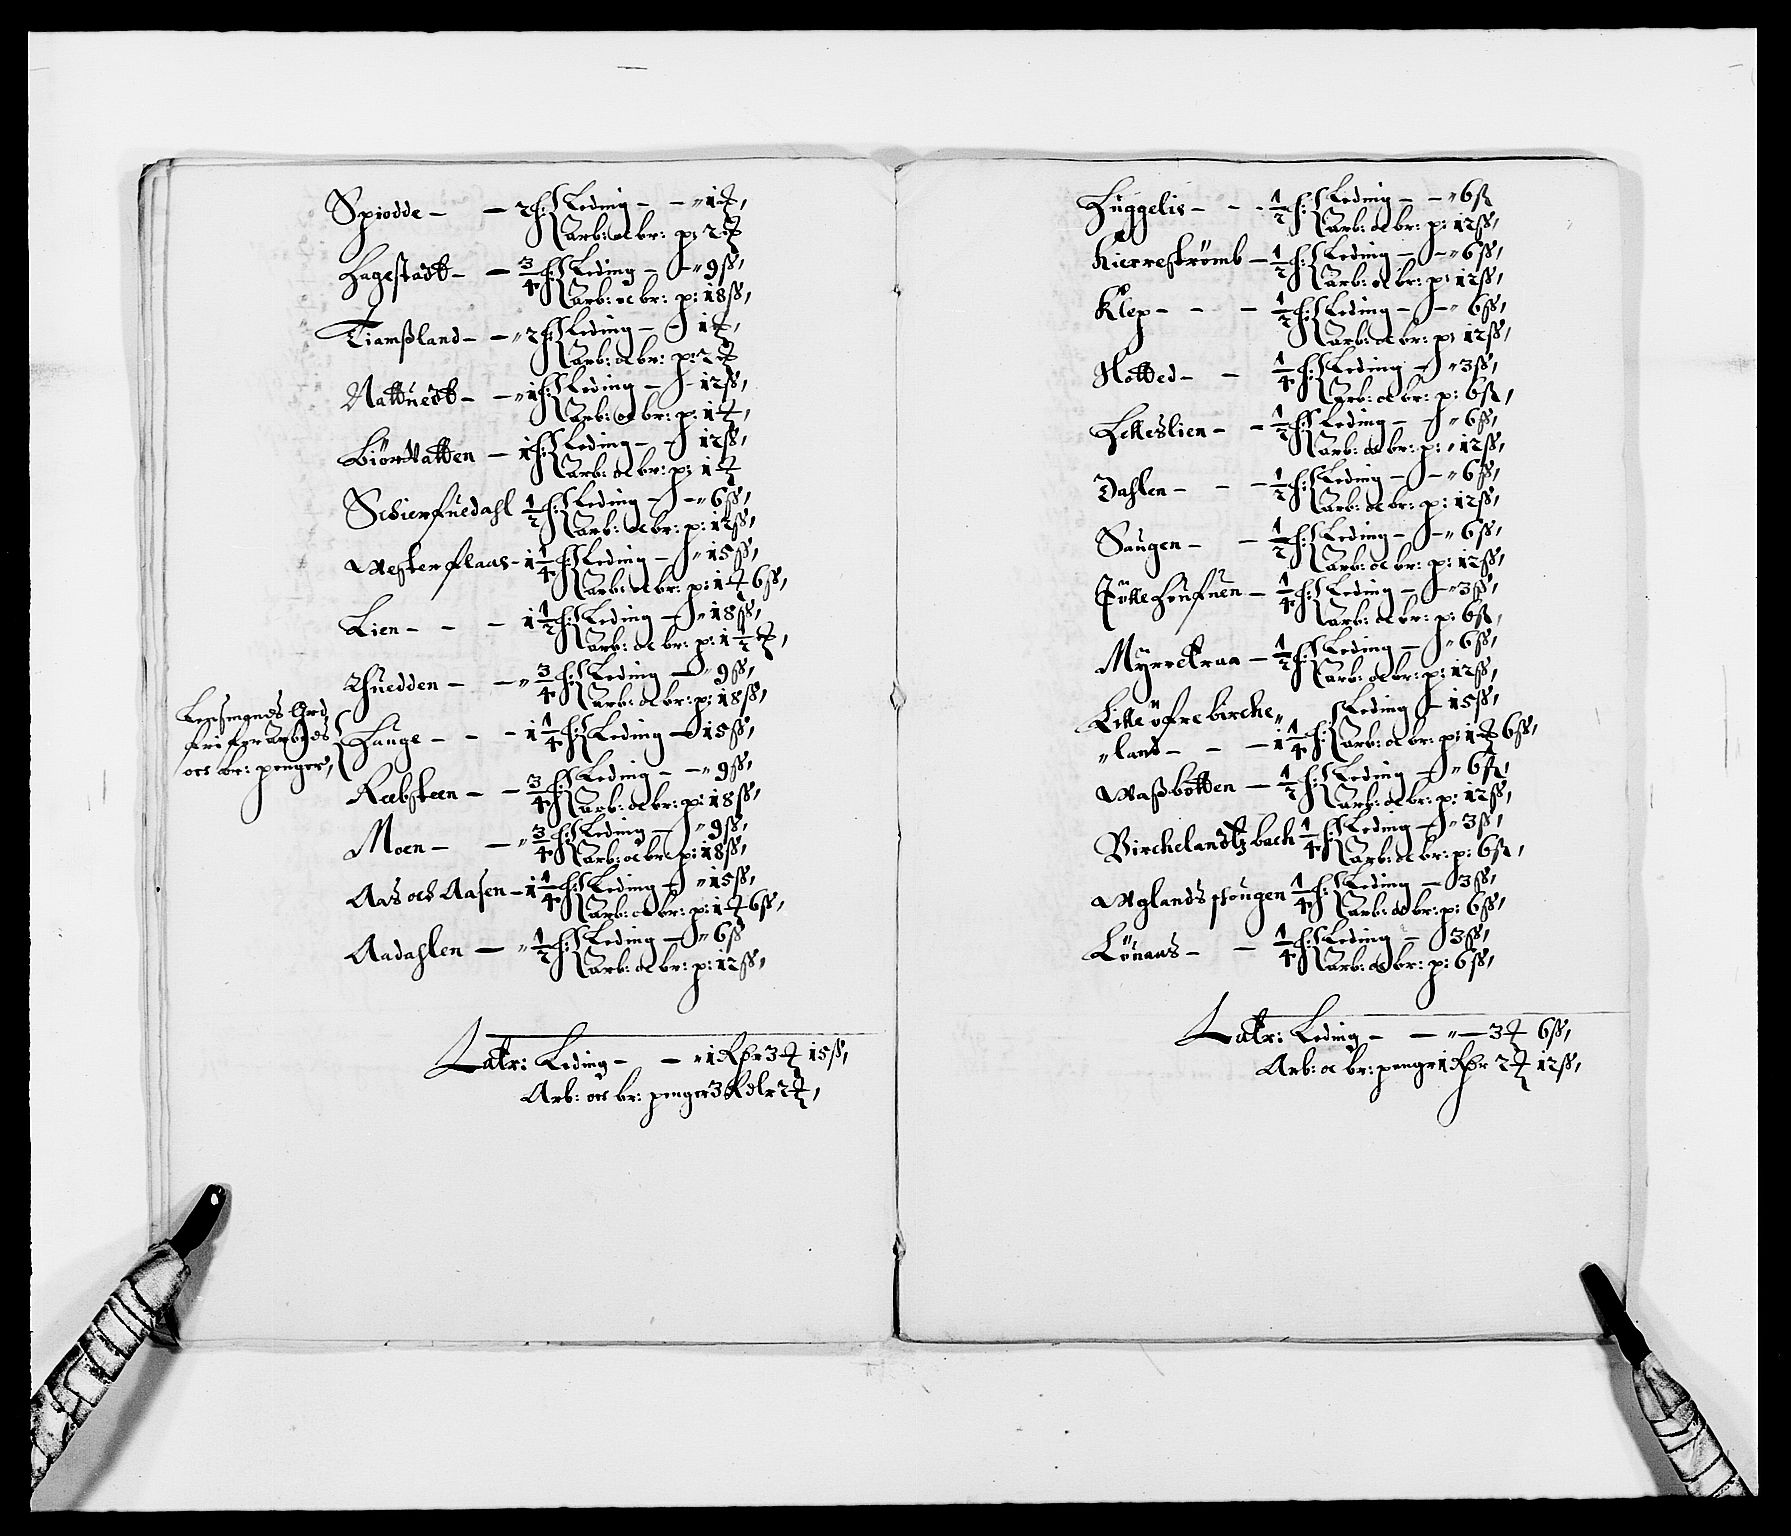 Spiodde — — 2 h: Leding — — " 1 ʒ,
Arb: oc br: p: 2 ʒ
Hagestadt — — 3/4 h: Leding — — " 9 ß,
Arb: oc br: p: 18 ß,
Tiamßland — — " 2 h: Leding — — 1 ʒ,
Arb: oc br: p: 2 ʒ
Nattuedt — — " 1 h: Leding — — 12 ß,
Arb: oc br: p: 1 ʒ,
Biørvatten — 1 h: Leding — — 12 ß,
Arb: oc br: p: 1 ʒ
Schierfuedahl 1/2 h: Leding — — " 6 ß,
Arb: oc br: p: 12 ß,
Westerflaas — 1 1/4 h: Leding — " 15 ß,
Arb: oc br: p: 1 ʒ 6 ß,
Lien — — — 1 1/2 h: Leding — " 18 ß,
Arb: oc br: p: 1 1/2 ʒ,
Thuedden — — " 3/4 h: Leding — " 9 ß,
Arb: oc br: p: 18 ß,
Lensmands Grd,
fri for Arbeds
och br: penger,
Hauge — — — 1 1/4 h: Leding — 15 ß,
Rebsteen — — 3/4 h: Leding — — " 9 ß,
Arb: oc br: p: 18 ß,
Moen — — " 3/4 h: Leding — " 9 ß,
Arb: oc br: p: 18 ß,
Aas och Aasen — 1 1/4 h: Leding — " 15 ß,
Arb: oc br: p: 1 ʒ 6 ß,
Aadahlen — " 1/2 h: Leding — " 6 ß
Arb: oc br: p: 12 ß,
Latr: Leding — — " 1 Rdr 3 ʒ 15 ß,
Arb: och br: penger 3 Rdlr 2 ʒ,
Huggelis — — 1/2 h: Leding — — " 6 ß
Arb: oc br: p: 12 ß,
Kierrestrømb — 1/2 h: Leding — — " 6 ß,
Arb: oc br: p: 12 ß,
Klep — — — 1/2 h: Leding — — " 6 ß,
Arb: oc br: p: 12 ß,
Hotted — — 1/4 h: Leding — " 3 ß,
Arb: oc br: p: 6 ß,
Letteslien — — 1/2 h: Leding — " 6 ß,
Arb: oc br: p: " 12 ß,
Dahlen — — — 1/2 h: Leding — — " 6 ß,
Arb: oc br: p: 12 ß,
Haugen — — 1/2 h: Leding — — " 6 ß,
Arb: oc br: p: 12 ß,
— 1/4 h: Leding — — " 3 ß,
Arb: oc br: p: 6 ß,
Myrrekraa — 1/2 h: Leding — " 6 ß,
Arb: oc br: p: 12 ß,
Lille øfre birche " Leding — 15 ß,
" land — — — 1 1/4 h: Arb: oc br: p: 1 ʒ 6 ß,
Waßbotten — 1/2 h: Leding — " 6 ß,
Arb: oc br: p: 12 ß,
Birchelandtz bach 1/4 h: Leding — " 3 ß,
Arb: oc br: p: 6 ß,
Uglands hougen 1/4 h: Leding — 3 ß,
Arb: oc br: p: 6 ß,
Lønaas — — 1/4 h: Leding — 3 ß,
Arb: oc br: p: 6 ß,
Latr: Leding — — " — 3 ʒ 6 ß,
Arb: oc br: pengr 1 Rdr 2 ʒ 12 ß,